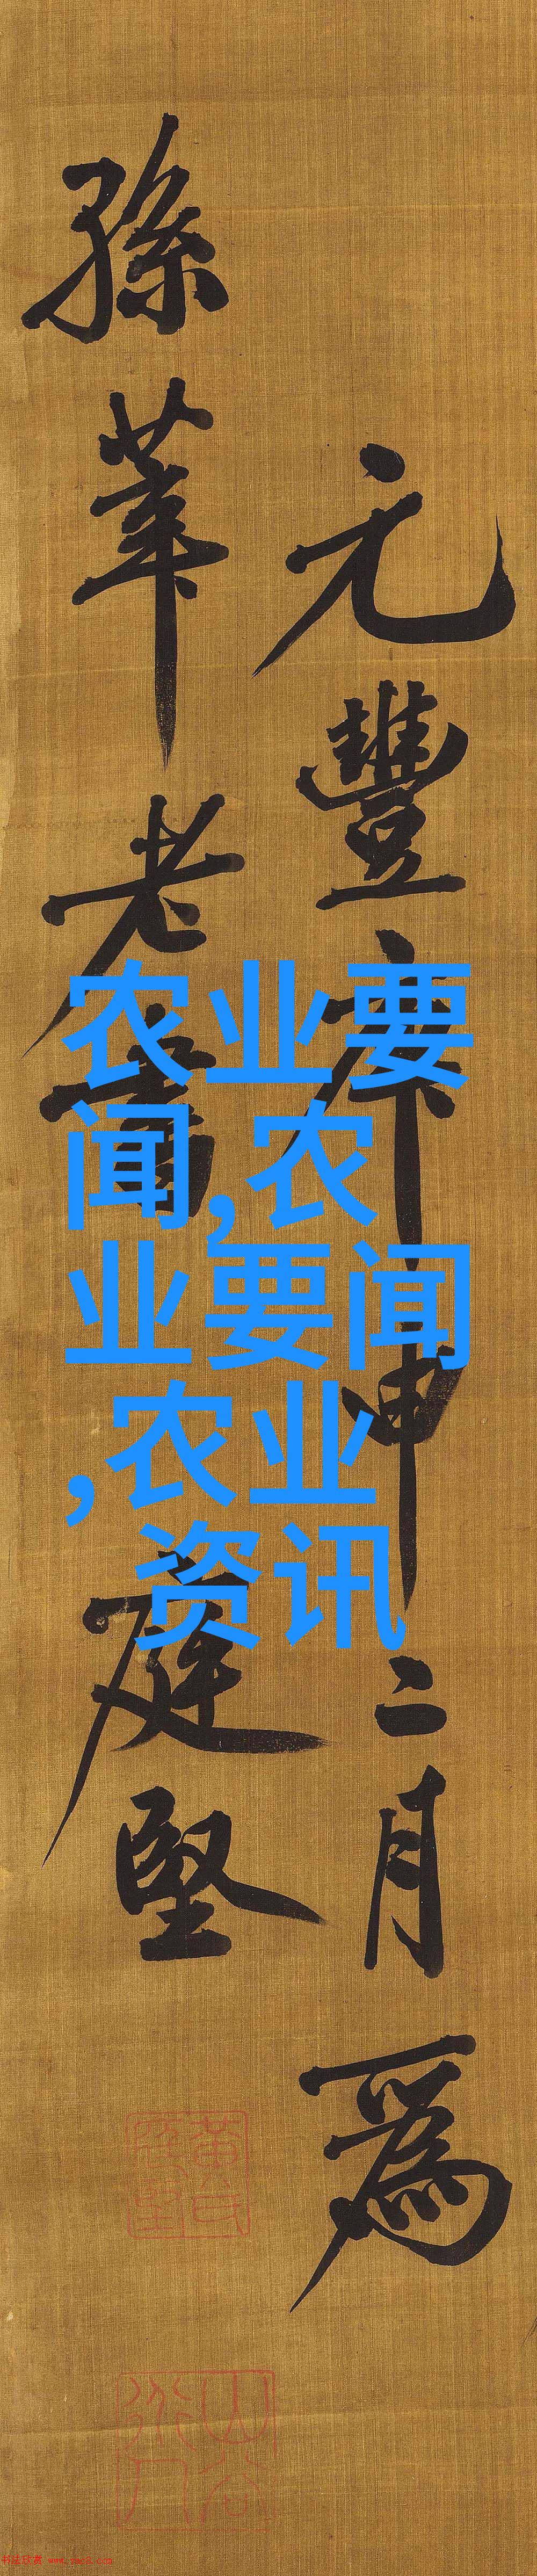 元豐庚申二月爲
孫莘老書
庭堅
农业要
闻,农
业要闻
,农业
资讯